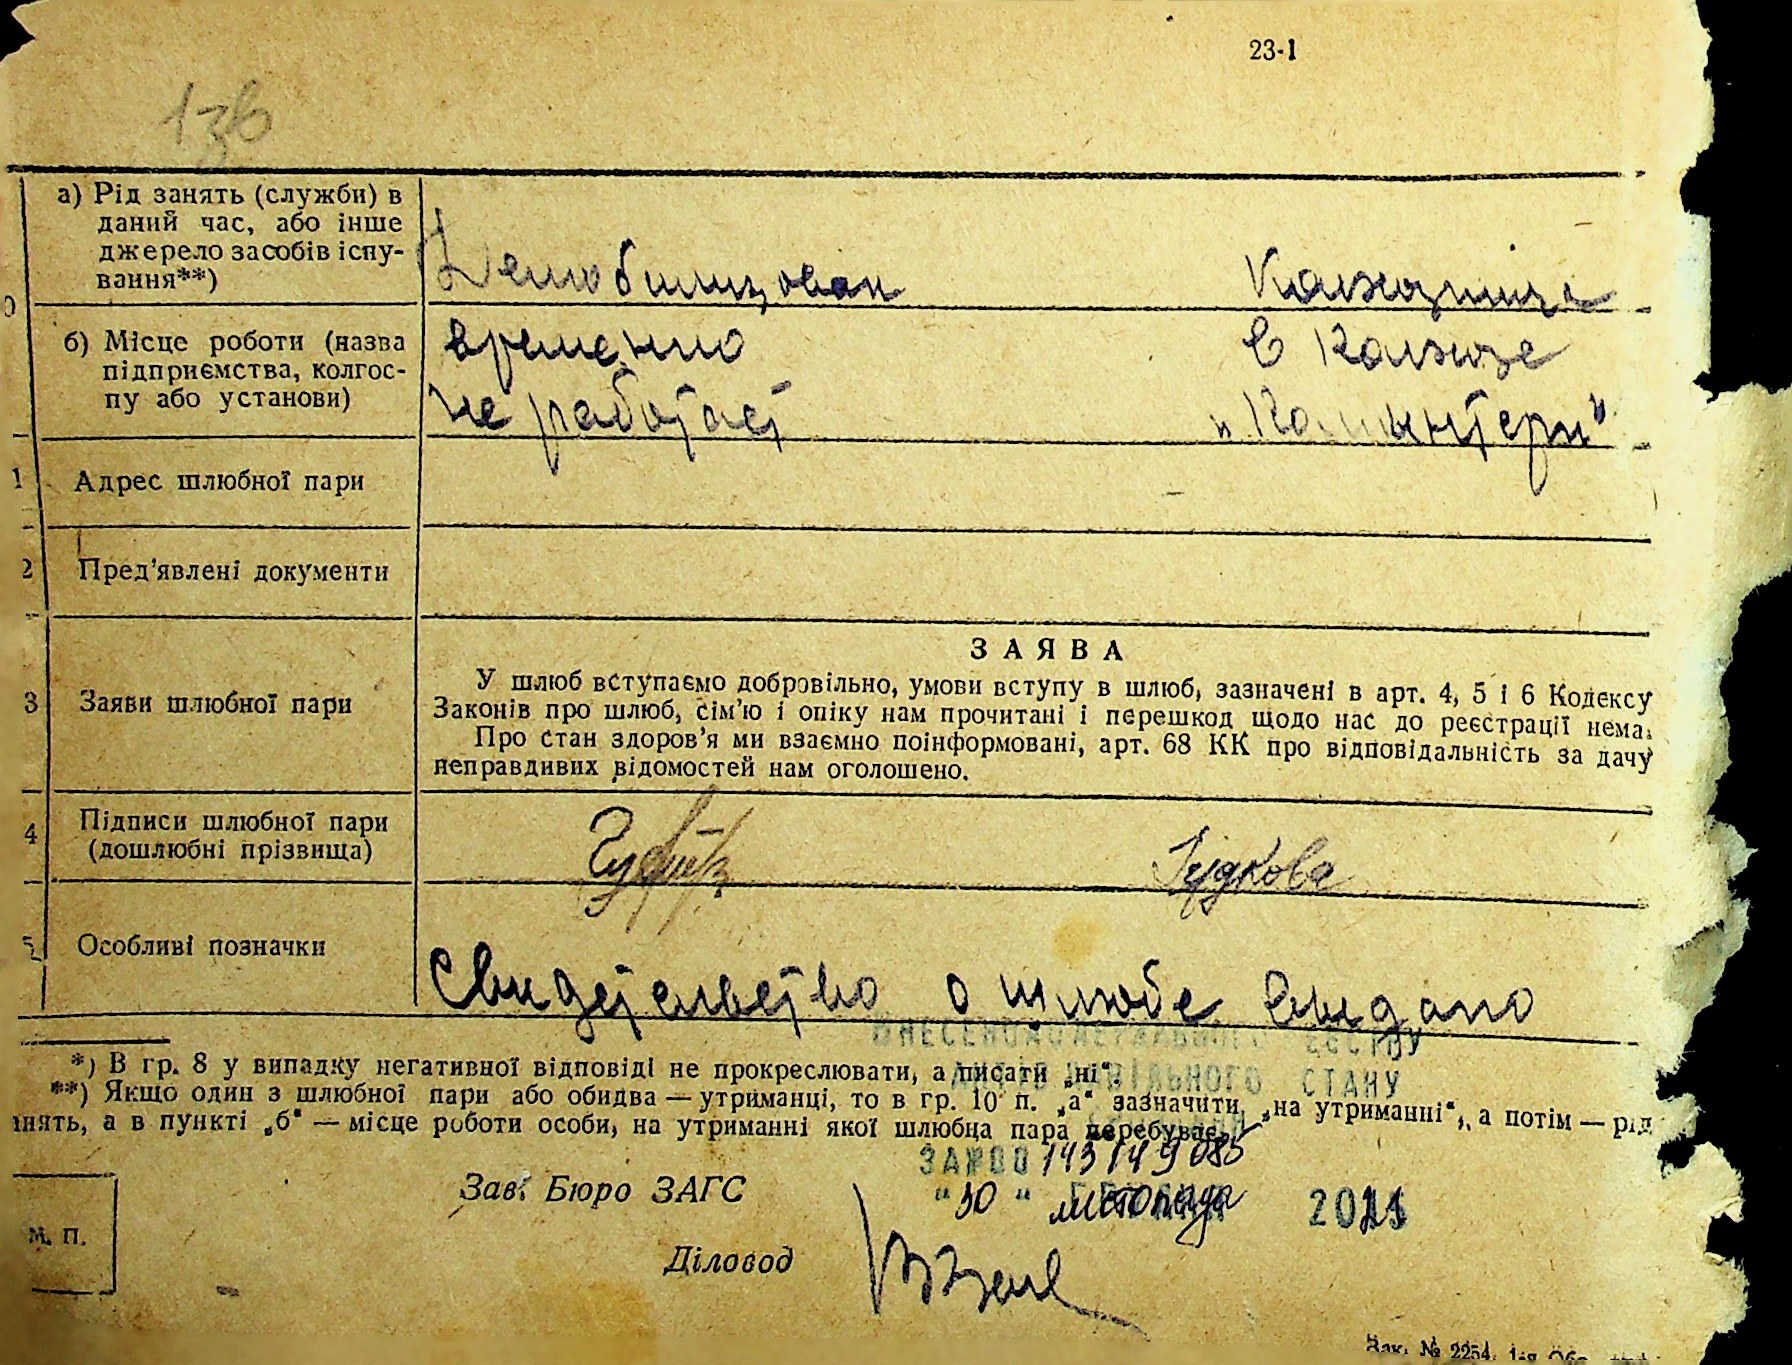 23-1
136
а) Рід занять (служби) в
даний час, або інше
джерело засобів існу-
вання**)
Демобилизован
Колхозница
б) Місце роботи (назва
підприємства, колгос-
пу або установи)
временно
не работает
в колхозе
„Коминтерн"
1 Адрес шлюбної пари
2 Пред'явлені документи
3 Заяви шлюбної пари
ЗАЯВА
У шлюб вступаємо добровільно, умови вступу в шлюб, зазначені в арт. 4, 5 і 6 Кодексу
Законів про шлюб, сім'ю і опіку нам прочитані і перешкод щодо нас до реєстрації нема.
Про стан здоров'я ми взаємно поінформовані, арт. 68 КК про відповідальність за дачу
неправдивих відомостей нам оголошено.
4 Підписи шлюбної пари
(дошлюбні прізвища)
Гудкова
5 Особливі позначки
Свидетельство о шлюбе видано
*) В гр. 8 у випадку негативної відповіді не прокреслювати, а писати „ні".
**) Якщо один з шлюбної пари або обидва — утриманці, то в гр. 10 п. „а" зазначити „на утриманні", а потім — рід
нять, а в пункті „б" — місце роботи особи, на утриманні якої шлюбна пара перебуває.
СТАНУ
143149085
"30" листопада 2021
Зав. Бюро ЗАГС
М. П.
Діловод
Зак. № 2254.